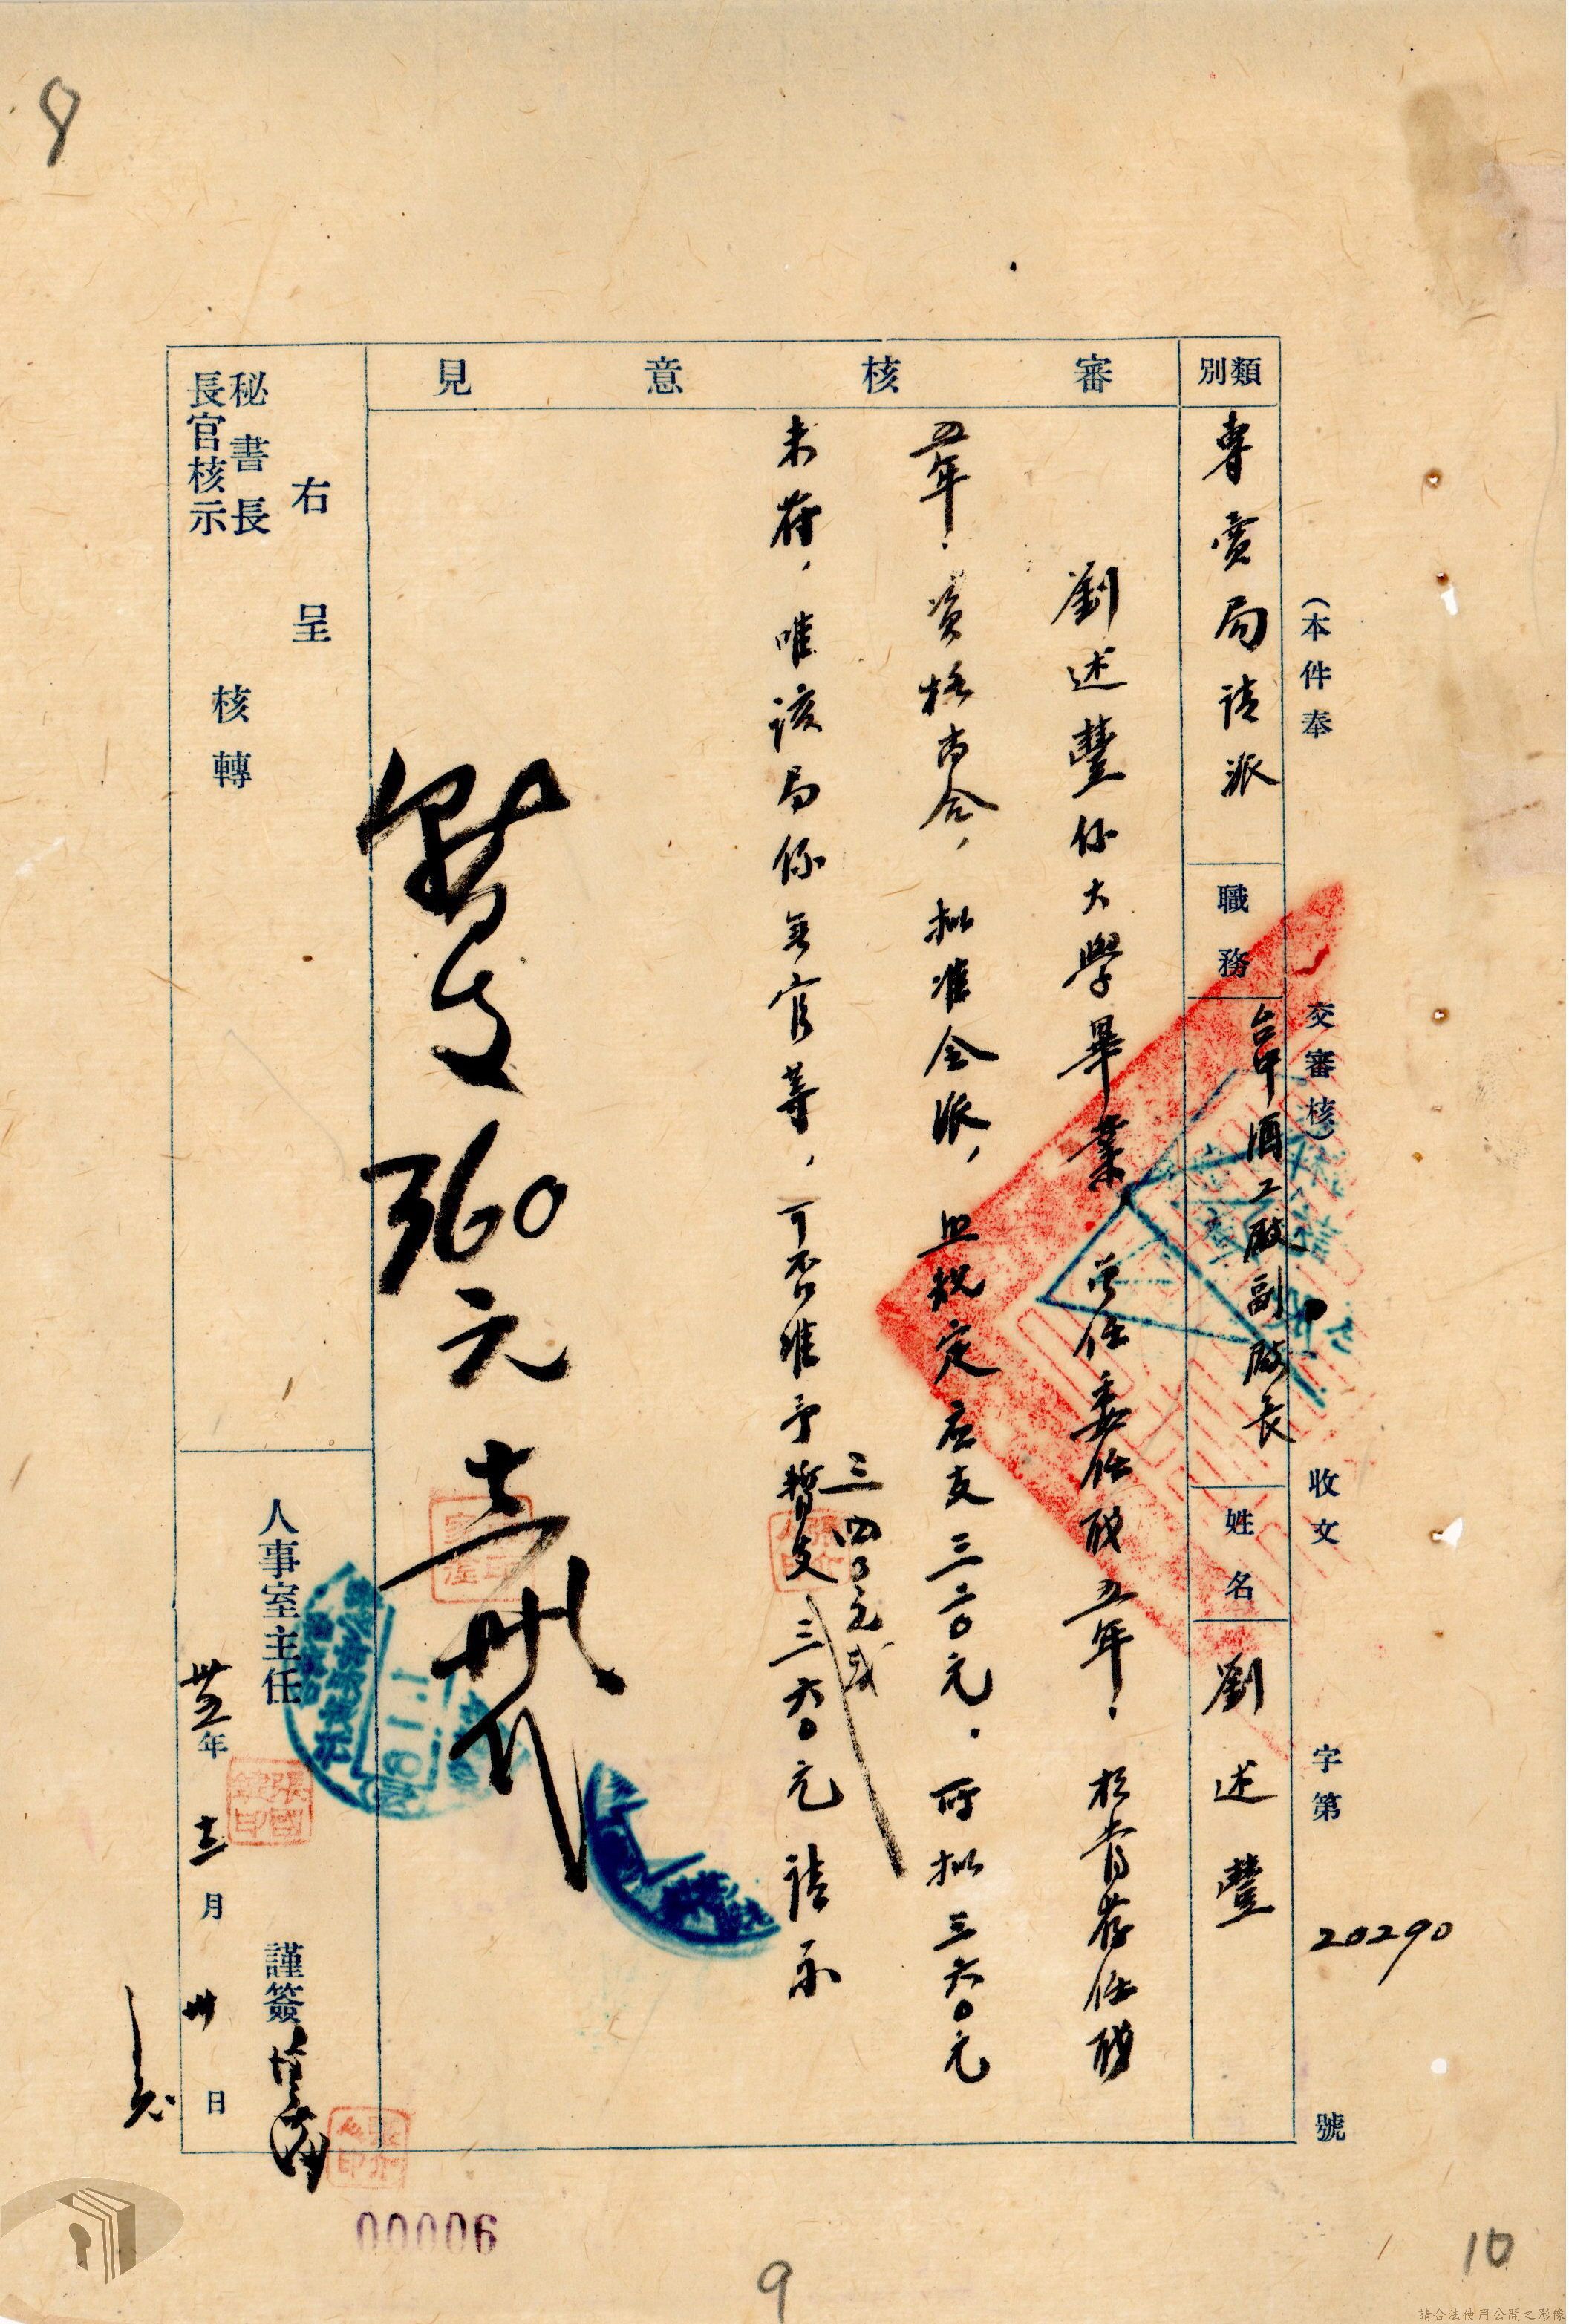 8
(本件奉 交審核) 收文 字第 20290 號
類別 專賣局請派 職務 台中酒工廠副廠長 姓名 劉述豐
審核意見
劉述豐係大學畢業，曾任委任職五年，相當荐任職
五年，資格尚合，拟准令派，且規定應支三二〇元，所拟三六〇元
未符，唯該局係無官等，可否准予暫支三六〇元請示
三四〇元或
暫支360元
右呈
秘書長 核轉
長官核示
人事室主任 謹簽
卅五年十二月卅日
00006
9
10
請合法使用公開之影像